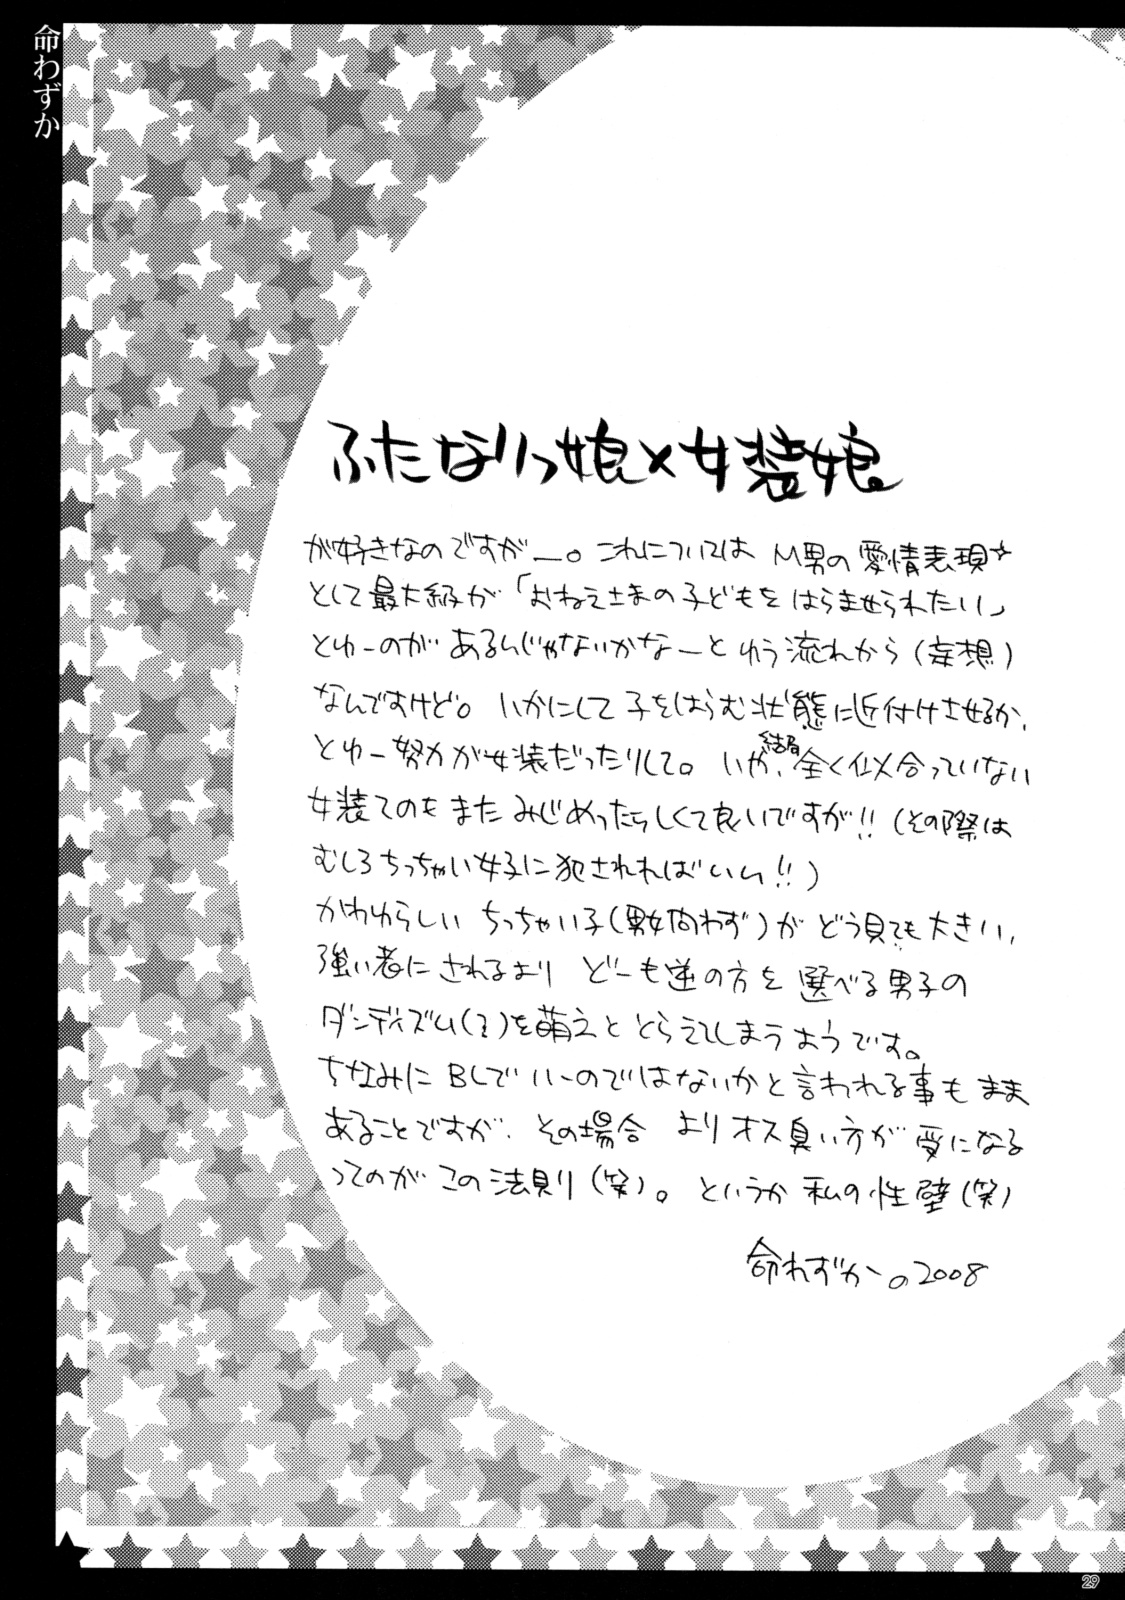 命わずか
ふたなりっ娘×女装娘。
が好きなのですがー。これについては M男の愛情表現☆
として最大級が「おねえさまの子どもをはらませられたい」
とゆーのが あるんじゃないかなーと ゆう流れから(妄想)
なんですけど。いかにして子をはらむ状態に近付けさせるか、
とゆー努力が女装だったりして。いや、結局全く似合っていない
女装てのも また みじめったらしくて良いですが!!(その際は
むしろちっちゃい女子に犯されればいい!!)
かわゆらしい ちっちゃい子(男女問わず)が どう見ても大きい、
強い者に されるより どーも逆の方を選べる男子の
ダンディズム(?)を萌えととらえてしまうようです。
ちなみに BLで いーのではないかと言われる事もまま
あることですが、その場合 よりオス臭い方が受になる
ってのが この法則(笑)。というか私の性壁(笑)
命わずかの2008
29